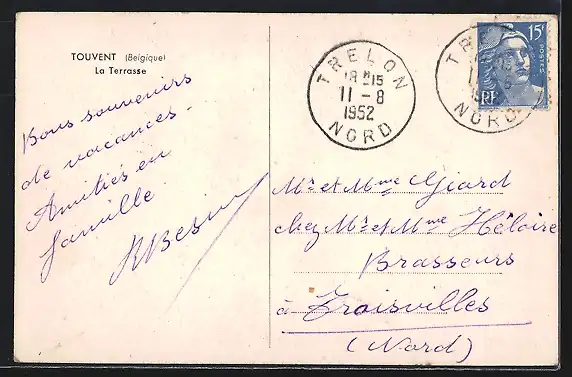 TOUVENT (Belgique)
La Terrasse
Bons souvenirs
de vacances -
Amitiés en
famille
TRELON
18H15
11-8
1952
NORD
TR
NORD
15F
POSTES
RF
Mr et Mme Giard
chez Mr et Mme Héloire
Brasseurs
à Troisvilles
(Nord)